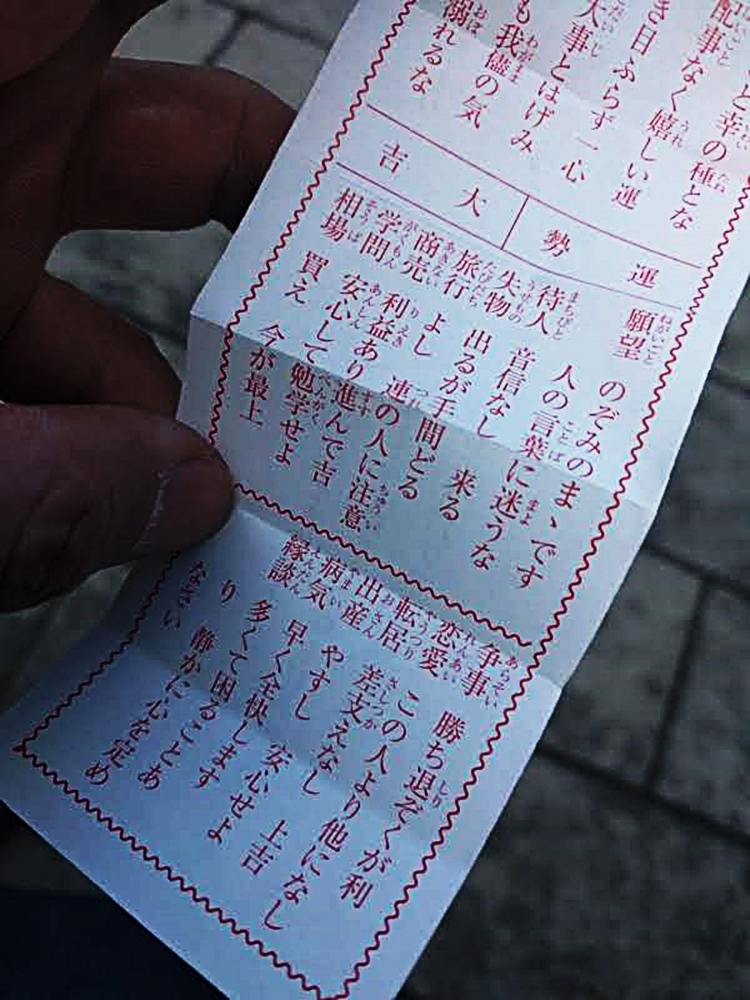 と幸の種とな
配事なく嬉しい運
き日ふらず一心
大事とはげみ
も我儘の気
溺れるな
運勢 大吉
願望 のぞみのまゝです
人の言葉に迷うな
待人 音信なし 来る
失物 出るが手間どる
旅行 よし 連の人に注意
商売 利益あり進んで吉
学問 安心して勉学せよ
相場 買え 今が最上
争事 勝ち退ぞくが利
恋愛 この人より他になし
転居 差支えなし 上吉
出産 やすし 安心せよ
病気 早く全快します
縁談 多くて困ることあ
り 静かに心を定め
なさい